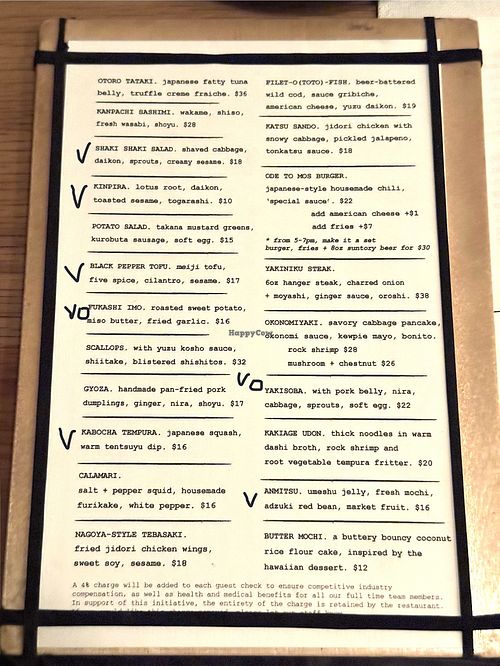 OTORO TATAKI. japanese fatty tuna
belly, truffle creme fraiche. $36
KANPACHI SASHIMI. wakame, shiso,
fresh wasabi, shoyu. $28
V SHAKI SHAKI SALAD. shaved cabbage,
daikon, sprouts, creamy sesame. $18
V KINPIRA. lotus root, daikon,
toasted sesame, togarashi. $10
POTATO SALAD. takana mustard greens,
kurobuta sausage, soft egg. $15
V BLACK PEPPER TOFU. meiji tofu,
five spice, cilantro, sesame. $17
VO FUKASHI IMO. roasted sweet potato,
miso butter, fried garlic. $16
SCALLOPS. with yuzu kosho sauce,
shiitake, blistered shishitos. $32
GYOZA. handmade pan-fried pork
dumplings, ginger, nira, shoyu. $17
V KABOCHA TEMPURA. japanese squash,
warm tentsuyu dip. $16
CALAMARI.
salt + pepper squid, housemade
furikake, white pepper. $16
NAGOYA-STYLE TEBASAKI.
fried jidori chicken wings,
sweet soy, sesame. $18
FILET-O(TOTO)-FISH. beer-battered
wild cod, sauce gribiche,
american cheese, yuzu daikon. $19
KATSU SANDO. jidori chicken with
snowy cabbage, pickled jalapeno,
tonkatsu sauce. $18
ODE TO MOS BURGER.
japanese-style housemade chili,
'special sauce'. $22
add american cheese +$1
add fries +$7
* from 5-7pm, make it a set
burger, fries + 8oz suntory beer for $30
YAKINIKU STEAK.
6oz hanger steak, charred onion
+ moyashi, ginger sauce, oroshi. $38
OKONOMIYAKI. savory cabbage pancake,
okonomi sauce, kewpie mayo, bonito.
rock shrimp $28
mushroom + chestnut $26
VO YAKISOBA. with pork belly, nira,
cabbage, sprouts, soft egg. $22
KAKIAGE UDON. thick noodles in warm
dashi broth, rock shrimp and
root vegetable tempura fritter. $20
V ANMITSU. umeshu jelly, fresh mochi,
adzuki red bean, market fruit. $16
BUTTER MOCHI. a buttery bouncy coconut
rice flour cake, inspired by the
hawaiian dessert. $12
A 4% charge will be added to each guest check to ensure competitive industry
compensation, as well as health and medical benefits for all our full time team members.
In support of this initiative, the entirety of the charge is retained by the restaurant.
HappyCow